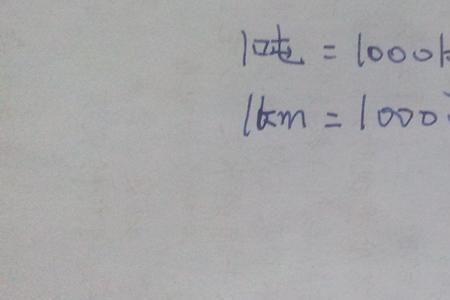 1吨 = 1000k
1km = 1000